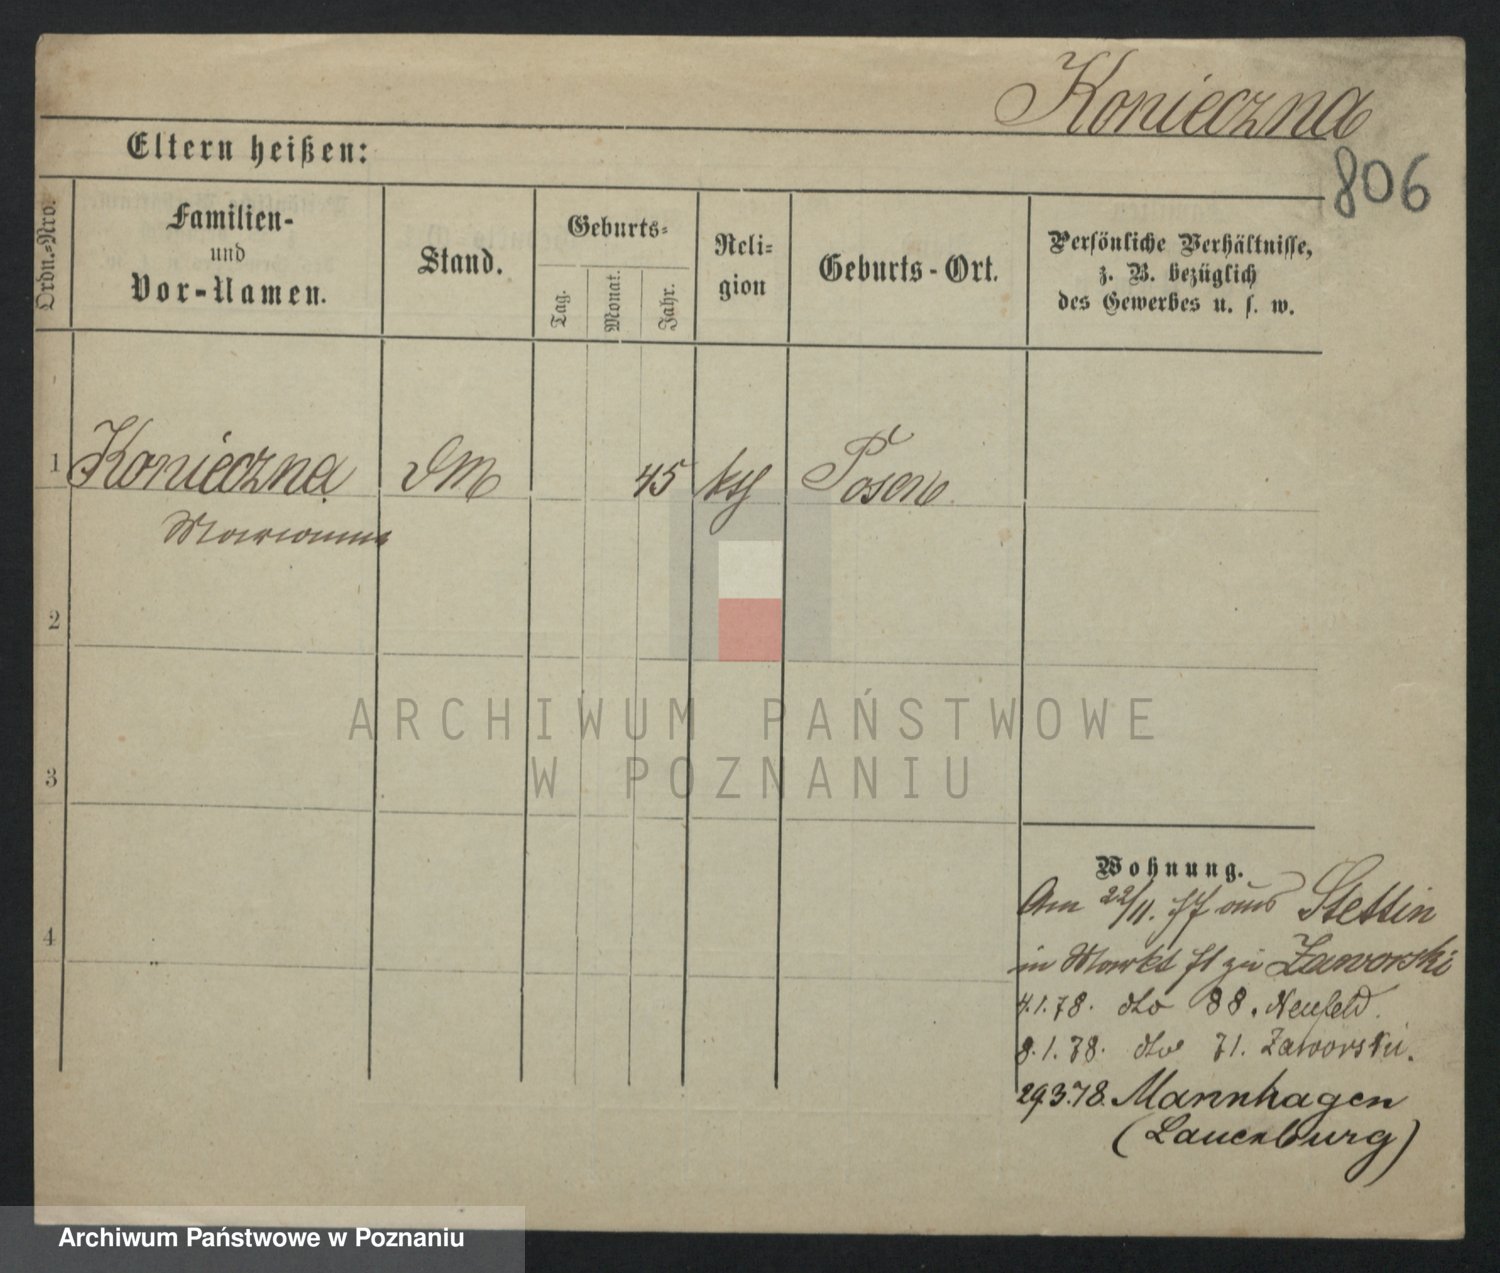 Konieczna
806
Eltern heißen:
Ordn.-Nro.
Familien-
und
Vor-Namen.
Stand.
Geburts-
Tag.
Monat.
Jahr.
Reli-
gion
Geburts-Ort.
Persönliche Verhältnisse,
z. B. bezüglich
des Gewerbes u. s. w.
1 Konieczna DM 45 kth Posen
Marianna
2
3
4
ARCHIWUM PAŃSTWOWE
W POZNANIU
Wohnung.
Am 22/11. 77 aus Stettin
in Markt 71 zu Zaworski
4.1.78. dto 88. Neufeld.
8.1.78. dto 71. Zaworski.
29.3.78. Mannhagen
(Lauenburg)
Archiwum Państwowe w Poznaniu